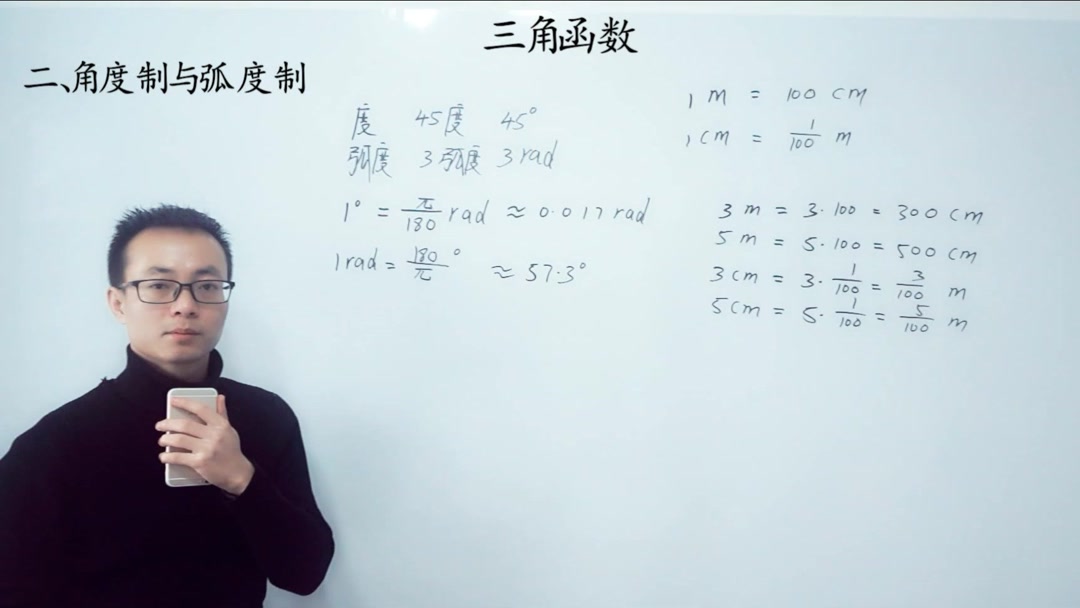 三角函数
二、角度制与弧度制
度 45度 45°
弧度 3弧度 3rad
1° = π/180 rad ≈ 0.017 rad
1rad = 180/π ° ≈ 57.3°
1 m = 100 cm
1 cm = 1/100 m
3 m = 3·100 = 300 cm
5 m = 5·100 = 500 cm
3 cm = 3·1/100 = 3/100 m
5 cm = 5·1/100 = 5/100 m